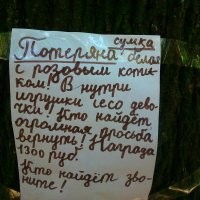 сумка
Потеряна белая
с розовым коти-
ком! В нутри
игрушки лесо дево-
чки! Кто найдёт
огромная просьба
вернуть! Награза
1300 руб.
Кто найдёт зво-
ните!